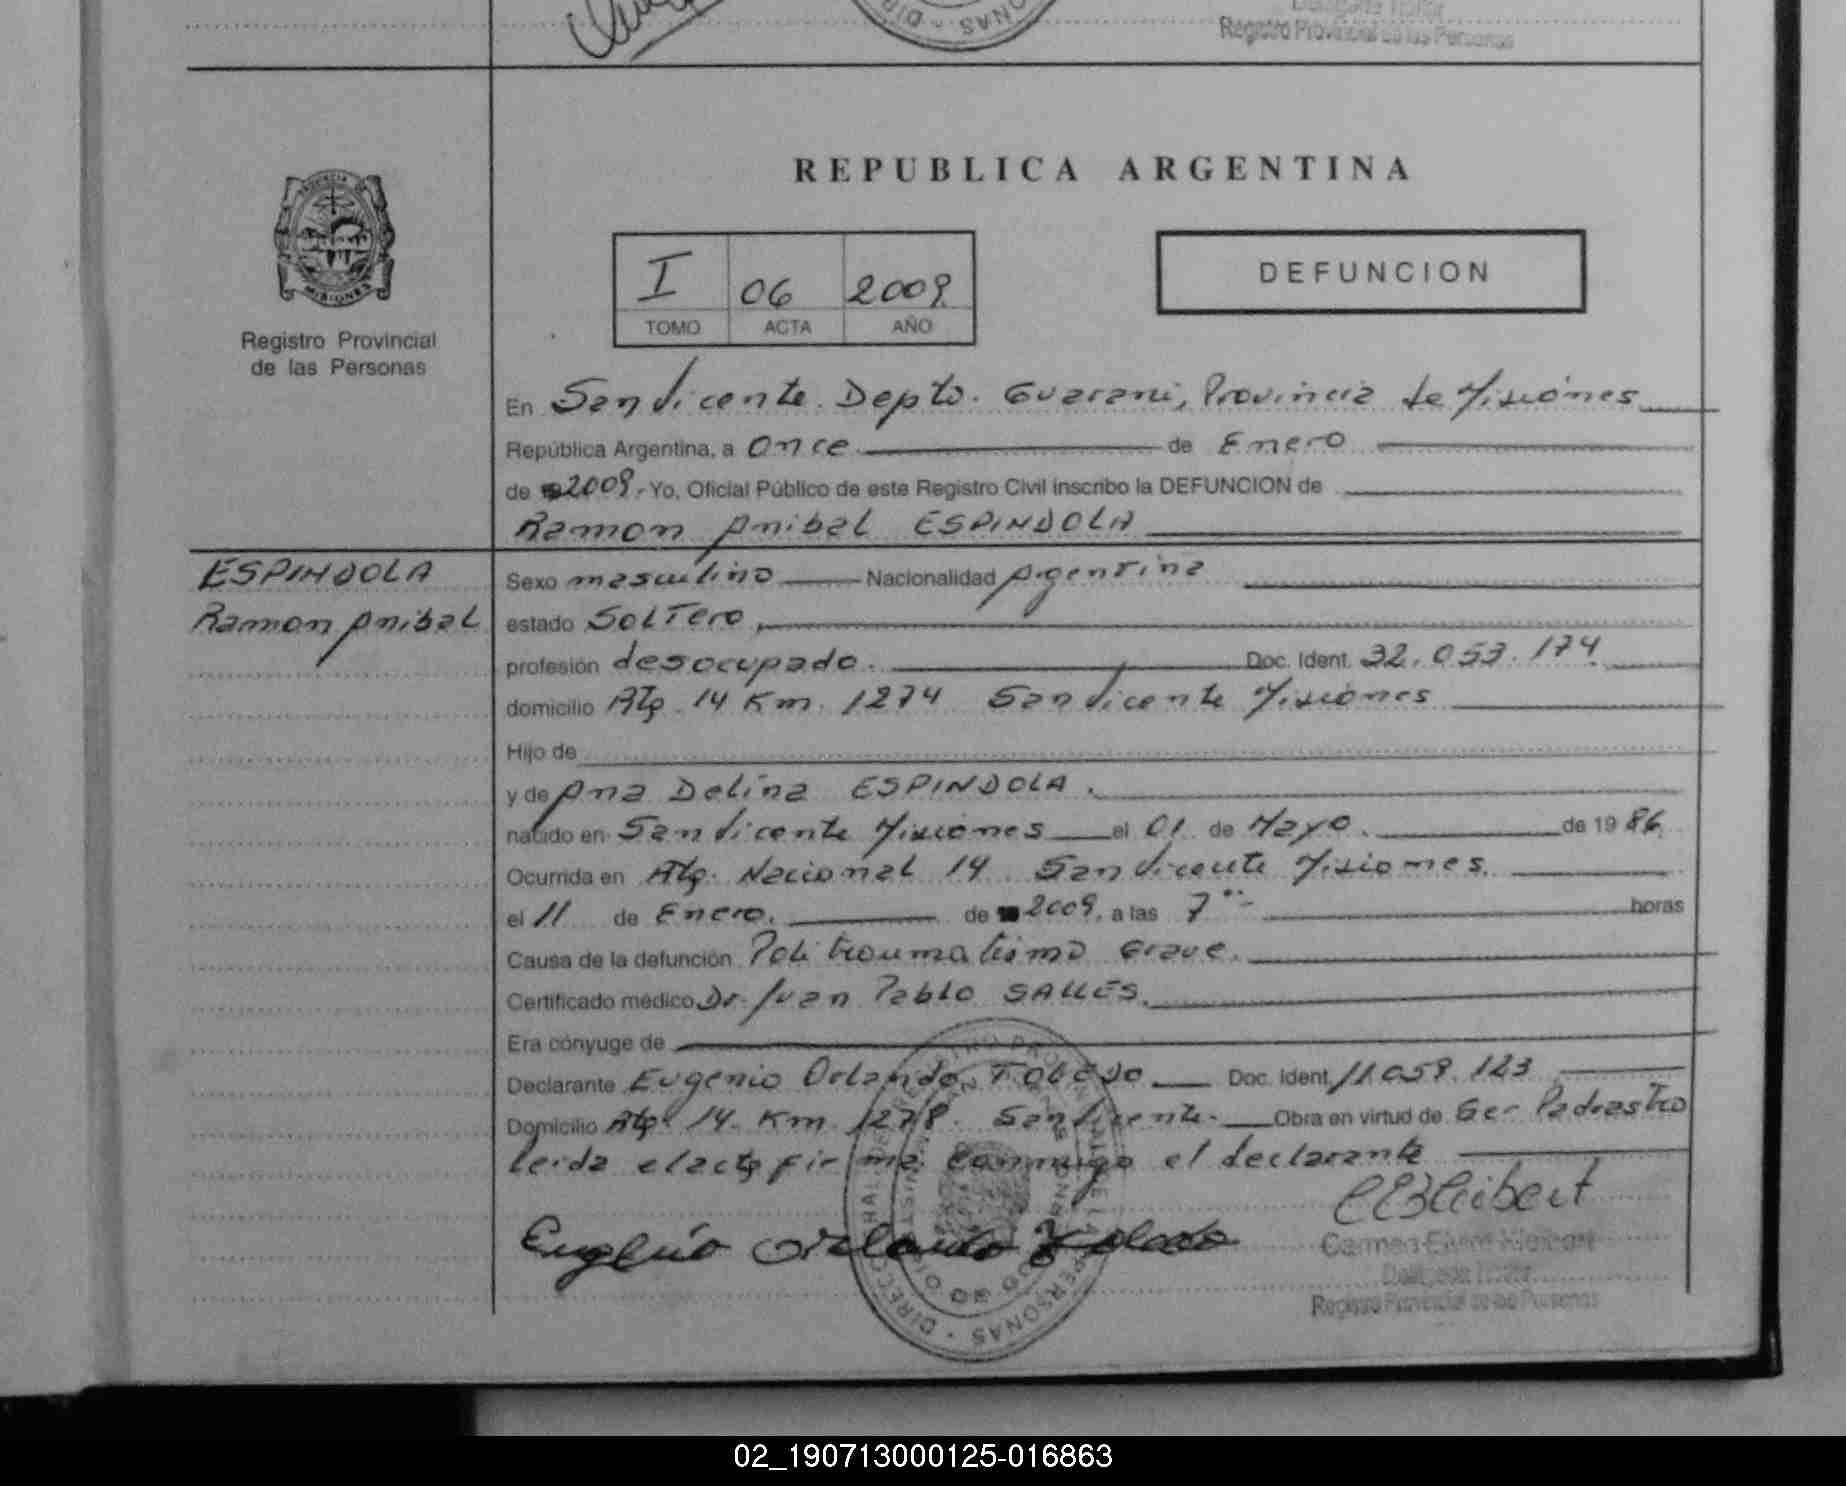 Registro Provincial de las Personas
REPUBLICA ARGENTINA
PROVINCIA DE
MISIONES
Registro Provincial
de las Personas
I 06 2009
TOMO ACTA AÑO
DEFUNCION
En San Vicente. Depto. Guarani, Provincia de Misiones
República Argentina, a Once de Enero
de 2009.- Yo, Oficial Público de este Registro Civil inscribo la DEFUNCION de
Ramon Anibal ESPINDOLA
ESPINDOLA
Ramon Anibal
Sexo masculino Nacionalidad Argentina
estado Soltero
profesión desocupado. Doc. Ident. 32.053.174
domicilio Rta 14 Km. 1274 San Vicente Misiones
Hijo de
y de Ana Delina ESPINDOLA.
nacido en San Vicente Misiones el 01 de Mayo. de 19 86
Ocurrida en Rta. Nacional 14 San Vicente Misiones.
el 11 de Enero. de 2009. a las 7 horas
Causa de la defunción Politraumatismo Grave.
Certificado médico Dr. Juan Pablo SALLES.
Era cónyuge de
Declarante Eugenio Orlando TOLEDO Doc. Ident. 11.059.123
Domicilio Rta 14 Km 1278. San Vicente. Obra en virtud de Ser Padrastro
leida el acta firma conmigo el declarante
Eugenio Orlando Toledo
Registro Provincial de las Personas
02_190713000125-016863